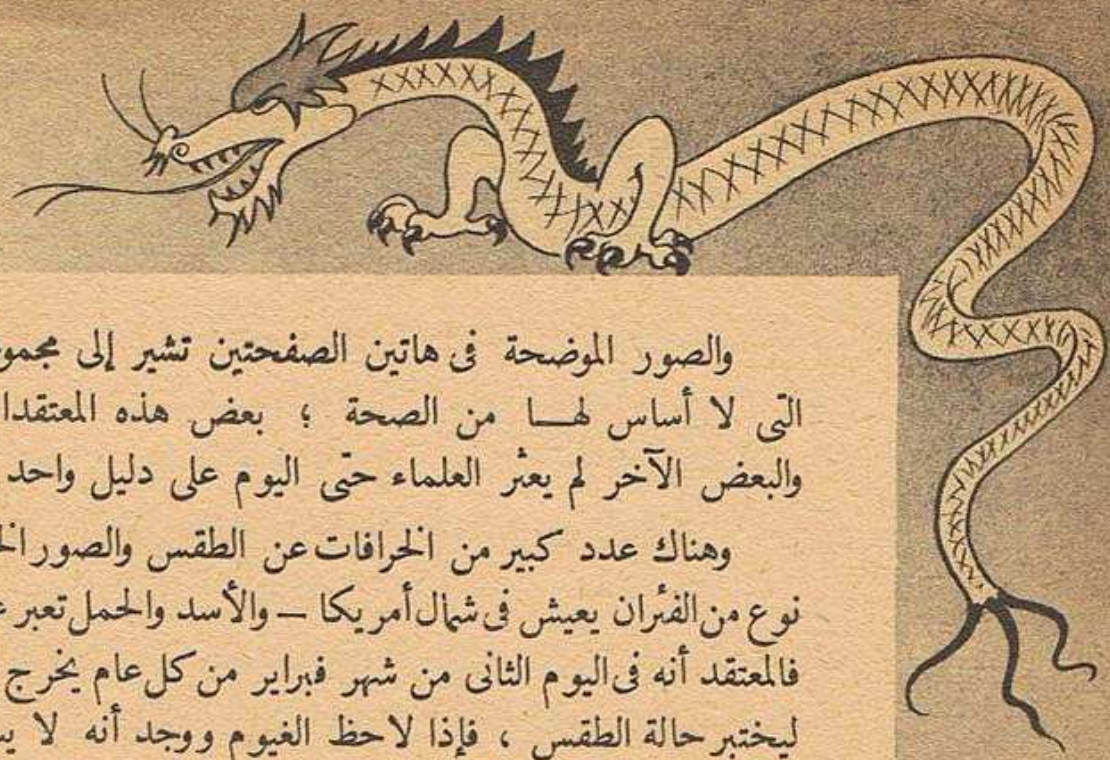 والصور الموضحة فى هاتين الصفحتين تشير إلى
التى لا أساس لهـا من الصحة ؛ بعض هذه
والبعض الآخر لم يعثر العلماء حتى اليوم على دليل واحد
وهناك عدد كبير من الخرافات عن الطقس والصور
نوع من الفئران يعيش فى شمال أمريكا – والأسد والحمل تعبر
فالمعتقد أنه فى اليوم الثانى من شهر فبراير من كل عام يخرج
ليختبر حالة الطقس ، فإذا لاحظ الغيوم ووجد أنه لا